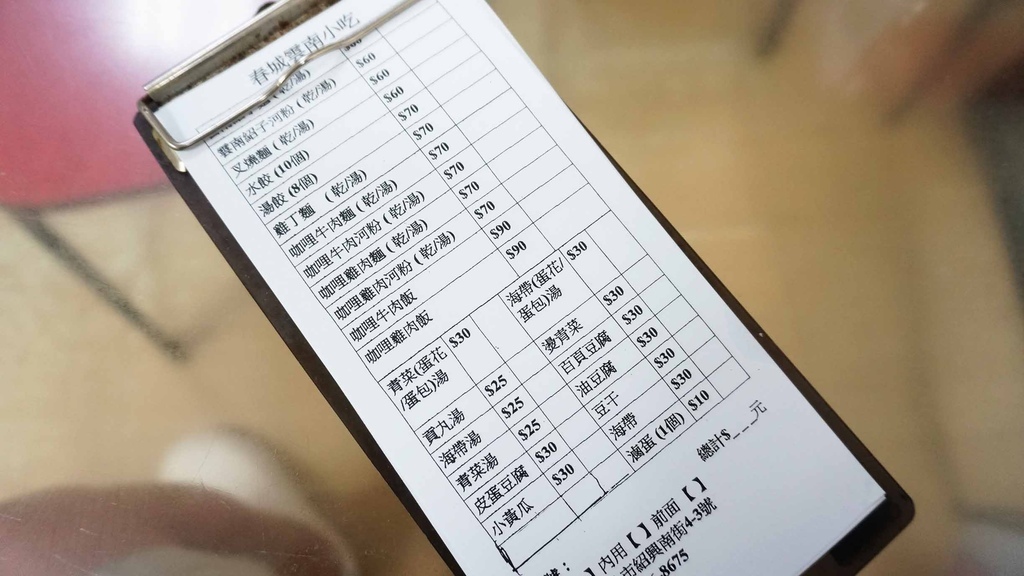 春城雲南小吃
(乾/湯)
雲南紹子河粉 (乾/湯)
叉燒麵 (乾/湯) $60
水餃 (10個) $60
湯餃 (8個) $60
雞丁麵 (乾/湯) $70
咖哩牛肉麵 (乾/湯) $70
咖哩牛肉河粉 (乾/湯) $70
咖哩雞肉麵 (乾/湯) $70
咖哩雞肉河粉 (乾/湯) $70
咖哩牛肉飯 $90
咖哩雞肉飯 $90
青菜(蛋花/蛋包)湯 $30 海帶(蛋花/蛋包)湯 $30
貢丸湯 $25 燙青菜 $30
海帶湯 $25 百頁豆腐 $30
青菜湯 $25 油豆腐 $30
皮蛋豆腐 $30 豆干 $30
小黃瓜 $30 海帶 $30
滷蛋 (1個) $10
總計$_ _ _元
號：
】內用【 】前面【 】
市紹興南街4-3號
8675